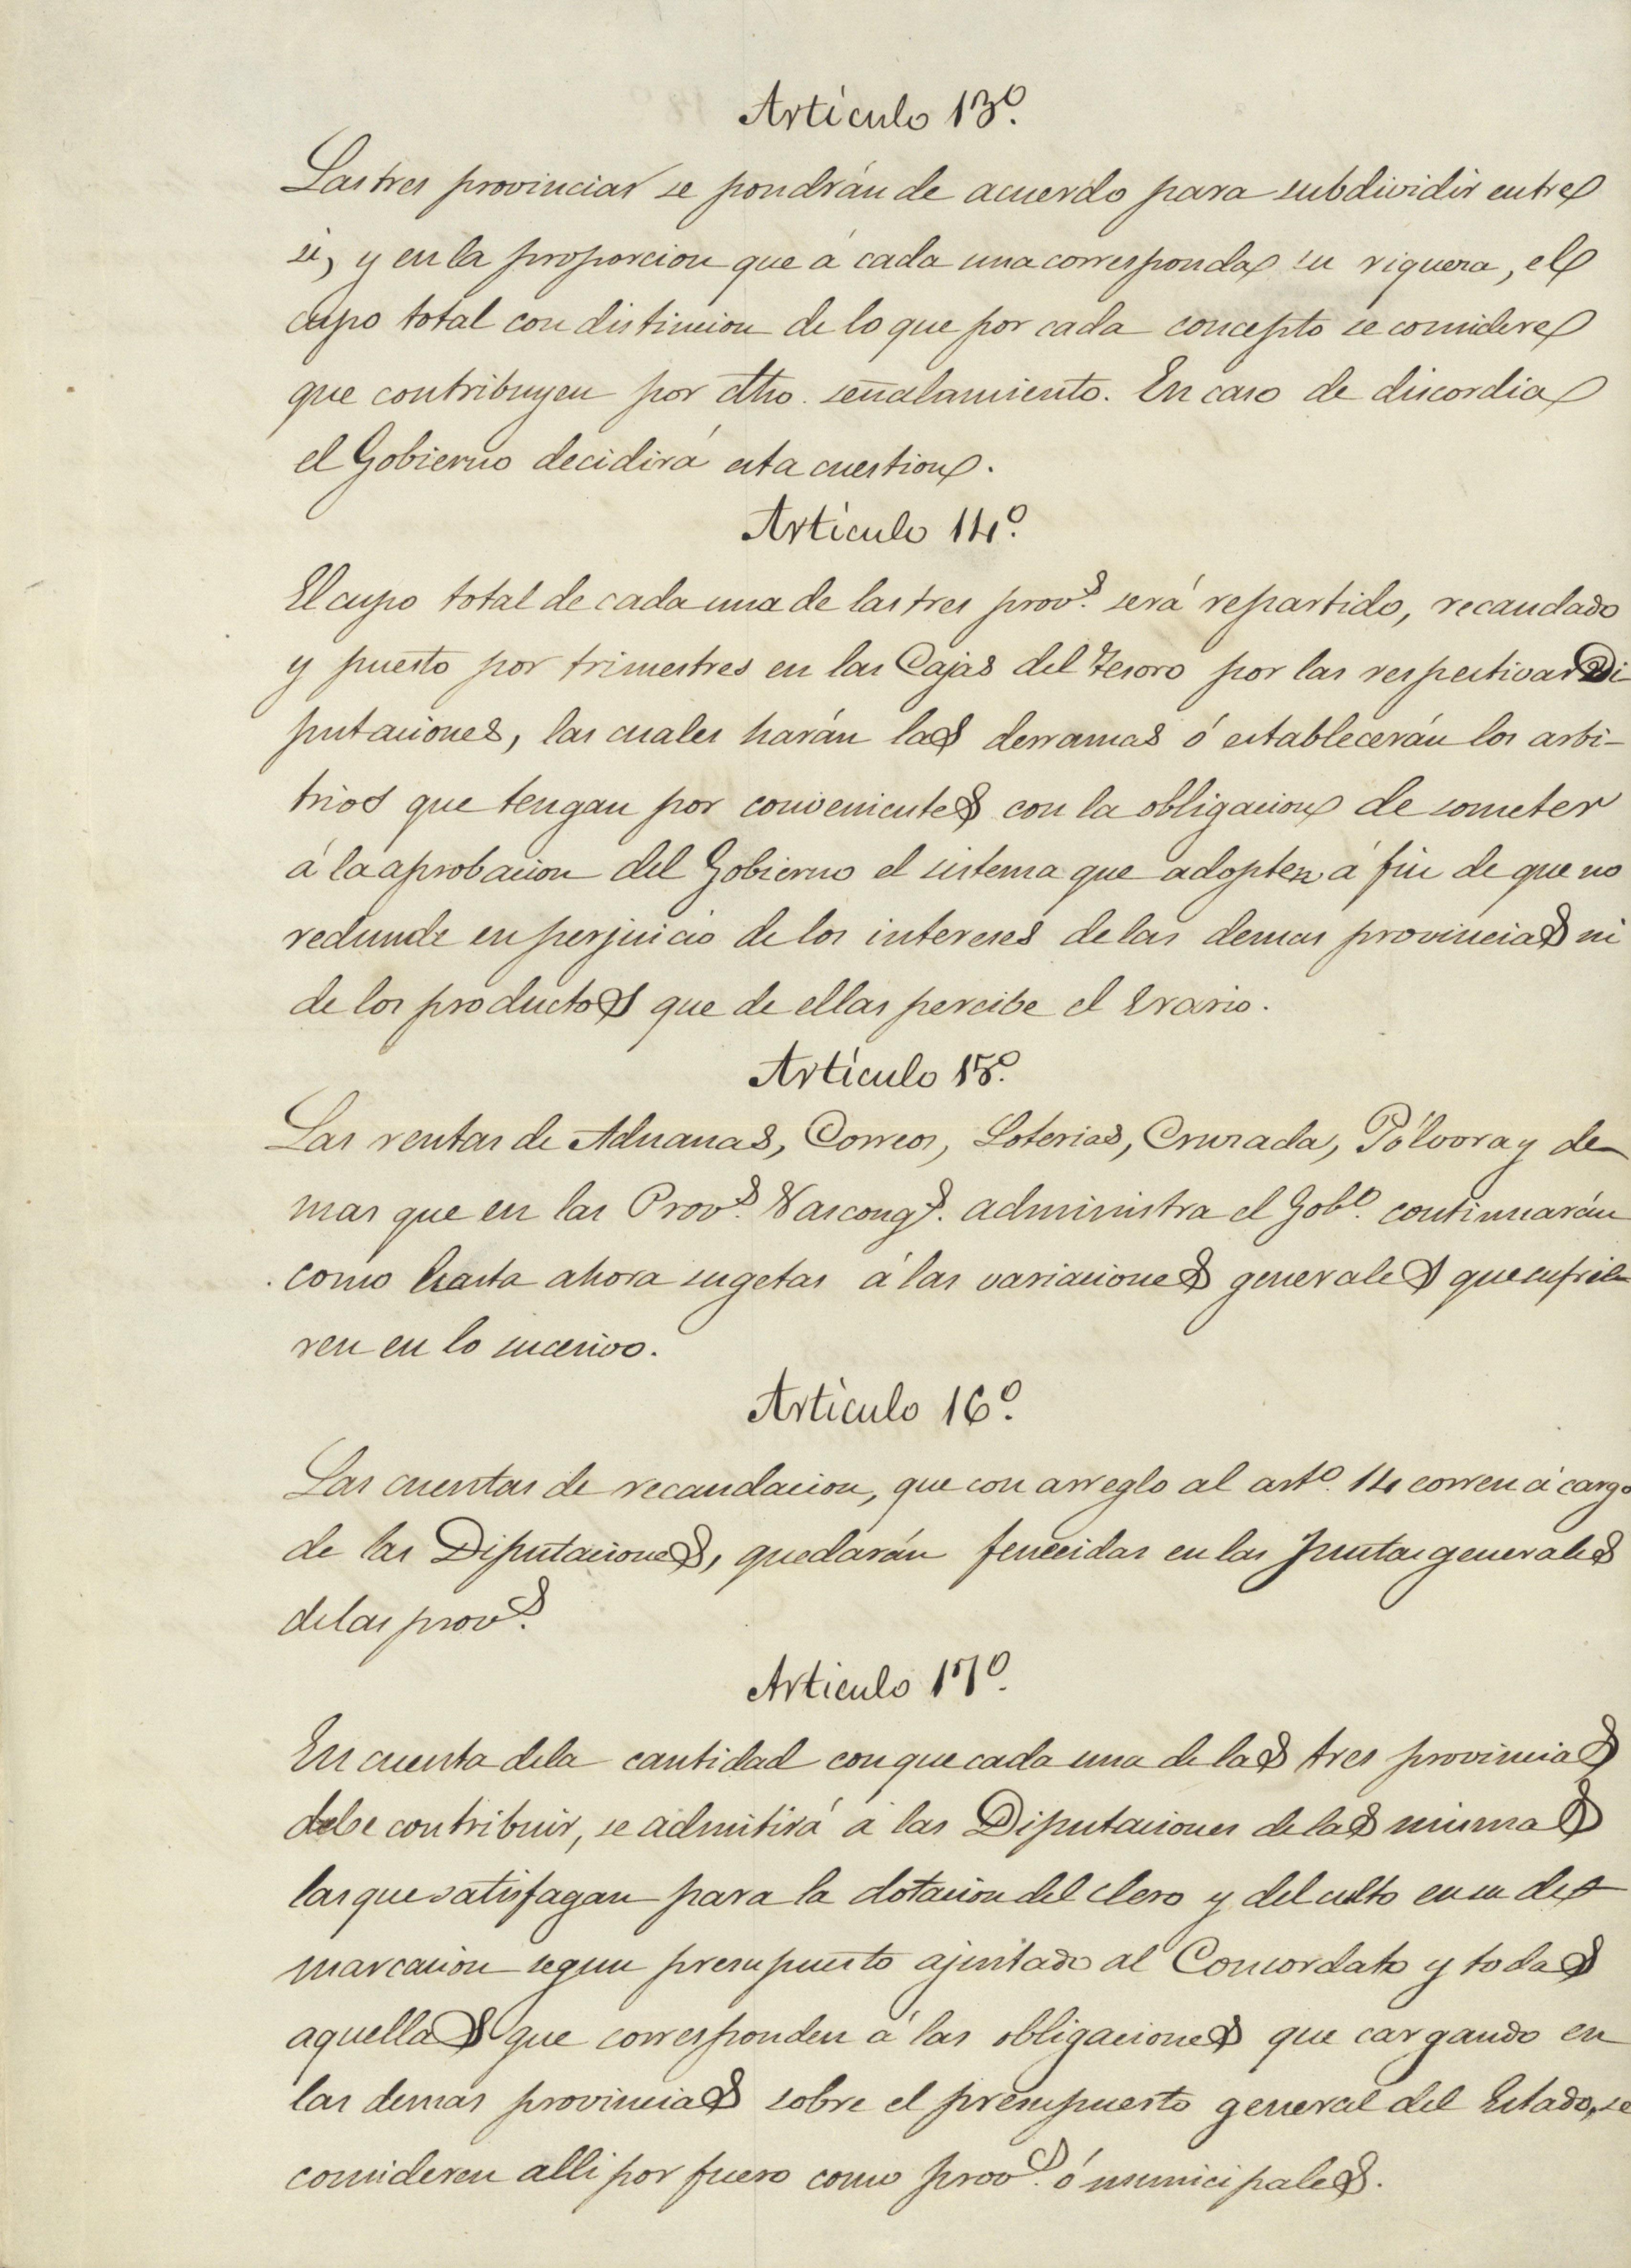 Artículo 13º.
Las tres provincias se pondrán de acuerdo para subdividir entre
sí, y en la proporcion que á cada una corresponda su riqueza, el
cupo total con distincion de lo que por cada concepto se considere
que contribuyen por dho. señalamiento. En caso de discordia
el Gobierno decidirá esta cuestion.
Artículo 14º.
El cupo total de cada una de las tres provs. será repartido, recaudado
y puesto por trimestres en las Cajas del Tesoro por las respectivas Di-
putaciones, las cuales harán las derramas ó establecerán los arbi-
trios que tengan por convenientes con la obligacion de someter
á la aprobacion del Gobierno el sistema que adopten á fin de que no
redunde en perjuicio de los intereses de las demas provincias ni
de los productos que de ellas percibe el Erario.
Artículo 15º.
Las rentas de Aduanas, Correos, Loterias, Cruzada, Pólvora y de-
mas que en las Provs. Vascongs. administra el Gobº. continuarán
como hasta ahora sugetas á las variaciones generales que sufrie-
ren en lo sucesivo.
Artículo 16º.
Las cuentas de recaudacion, que con arreglo al artº. 14 corren á cargo
de las Diputaciones, quedarán fenecidas en las Juntas generales
de las provs.
Artículo 17º.
En cuenta de la cantidad con que cada una de las tres provincias
debe contribuir, se admitirá á las Diputaciones de las mismas
las que satisfagan para la dotacion del clero y del culto en su de-
marcacion segun presupuesto ajustado al Concordato y todas
aquellas que corresponden á las obligaciones que cargando en
las demas provincias sobre el presupuesto general del Estado, se
consideren alli por fuero como provs. ó municipales.